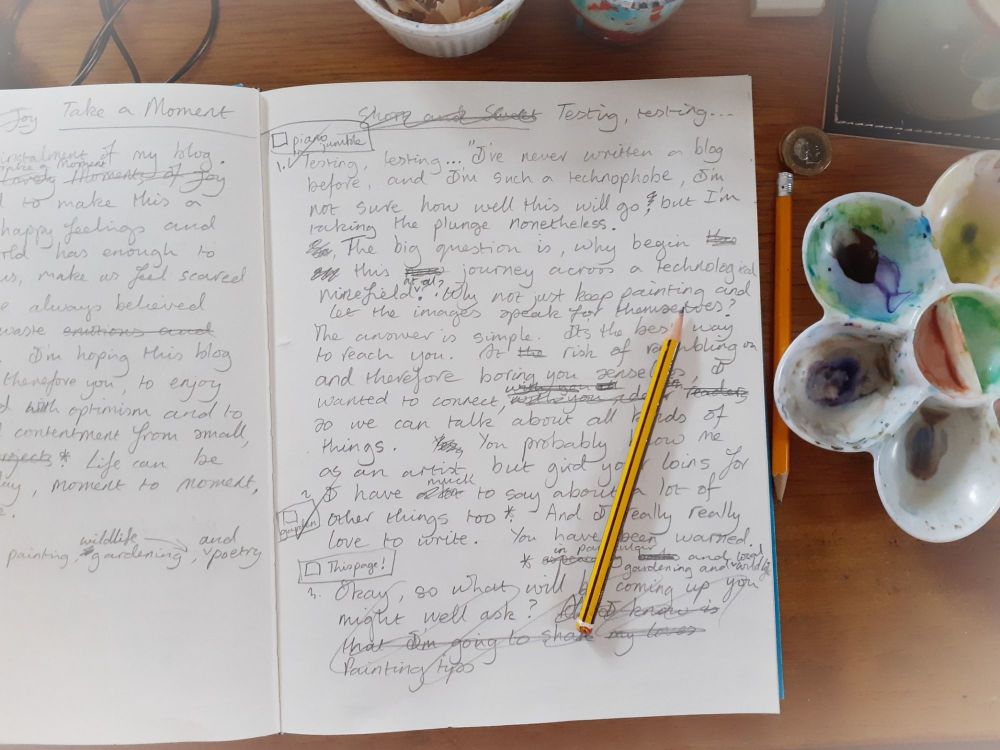 Joy Take a Moment
instalment of my blog.
Moment
Lovely Moments of Joy
d to make this a
happy feelings and
orld has enough to
us, make us feel scared
e always believed
waste emotions and
. I'm hoping this blog
therefore you, to enjoy
d with optimism and to
d contentment from small,
* Life can be
ay, moment to moment,
e.
wildlife and
painting, gardening, poetry
Short and Sweet Testing, testing...
piano jumble
1. Testing, testing... "I've never written a blog
before, and I'm such a technophobe, I'm
not sure how well this will go, but I'm
taking the plunge nonetheless.
The big question is, why begin
this journey across a technological
at all?
minefield? Why not just keep painting and
let the images speak for themselves?
The answer is simple. Its the best way
to reach you. At the risk of rambling on
and therefore boring you senseless, I
wanted to connect, with you readers
so we can talk about all kinds of
things. You probably know me
as an artist, but gird your loins for
much
2. I have to say about a lot of
other things too *. And I really really
love to write. You have been warned.
in particular
* and
gardening and
This page!
3. Okay, so what will be coming up, you
might well ask? I know is
that I'm going to share my loves
Painting tips